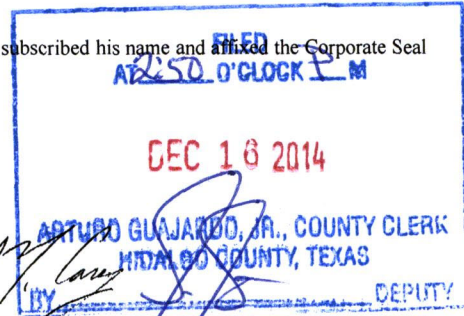 FILED
subscribed his name and affixed the Corporate Seal
AT 2:50 O'CLOCK P M
DEC 16 2014
ARTURO GUAJARDO, JR., COUNTY CLERK
HIDALGO COUNTY, TEXAS
BY DEPUTY